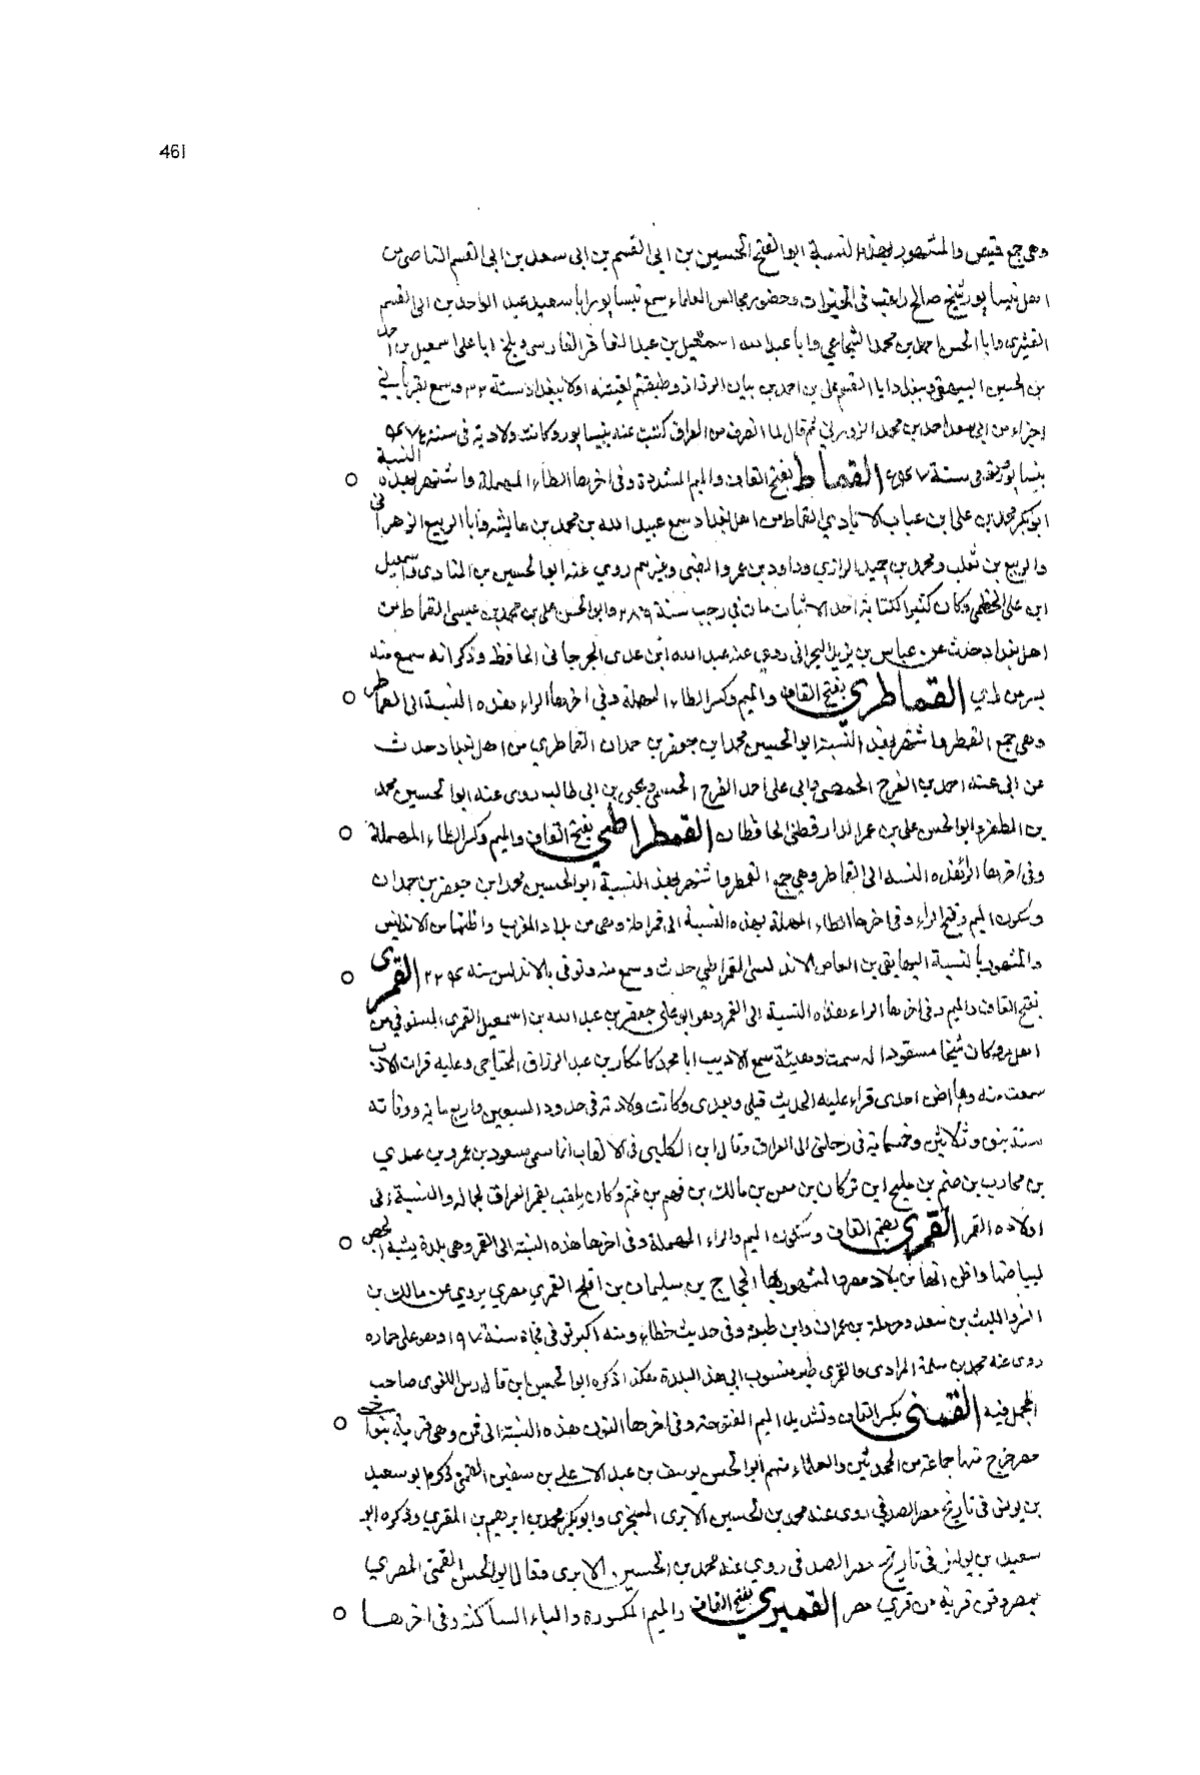 461
وهي جمع قميص والمشهور بهذه النسبة ابو الفتح الحسين بن ابي القسم بن ابي سعد بن ابي القسم القاضي من
اهل نيسابور شيخ صالح راغب في الخيرات وحضور مجالس العلماء سمع بنيسابور ابا سعيد عبد الواحد بن ابي القسم
القشيري وابا الحسن احمد بن محمد الشجاعي وابا عبد الله اسمعيل بن عبد الغافر الفارسي وببلخ ابا علي اسمعيل بن احمد
بن الحسين البيهقي وببغداد ابا القسم علي بن احمد بن بيان الرزاز وطبقتهم لقيته اولا ببغداد سنة ٣٢ وسمع بقراءتي
اجزاء من ابي سعد احمد بن محمد الزوزني ثم قال لما انصرف من العراق كتبت عنه بنيسابور وكانت ولادته في سنة
بنيسابور في سنة القماط بفتح القاف والميم المشددة وفي اخرها الطاء المهملة واشتهر بهذه النسبة
ابو بكر محمد بن علي بن عباب الايادي القماط من اهل بغداد سمع عبيد الله بن محمد بن عايشه وابا الربيع الزهراني
والربيع بن ثعلب ومحمد بن حميد الرازي وداود بن عمرو الضبي وغيرهم روي عنه ابو الحسين بن المنادى واسمعيل
ابن علي الخطبي وكان كثير الكتابة احد الاثبات مات في رجب سنة ٢٨٩ وابو الحسن علي بن محمد بن عيسى القماط من
اهل بغداد حدث عن عباس بن يزيد البحراني روي عنه عبد الله ابن عدي الجرجاني الحافظ وذكر انه سمع منه
بسر من راي القماطري بفتح القاف والميم وكسر الطاء المهملة وفي اخرها الراء هذه النسبة الى القماطر
وهي جمع القمطر واشتهر بهذه النسبة ابو الحسين محمد ابن جعفر بن حمدان القماطري من اهل بغداد حدث
عن ابي عتبة احمد بن الفرج الحمصي وابي علي احمد الفرج الجشمي ويحيى بن ابي طالب روى عنه ابو الحسين محمد
بن المظفر وابو الحسن علي بن عمر الدارقطني الحافظان القمطراطي بفتح القاف والميم وكسر الطاء المهملة
وفي اخرها الراء هذه النسبة الى القماطر وهي جمع القمطر واشتهر بهذه النسبة ابو الحسين محمد ابن جعفر بن حمدان
وسكون الميم وفتح الراء وفي اخرها الطاء المهملة بهذه النسبة الى قمراطة وهي من بلاد المغرب واظنها من الاندلس
والمشهور بالنسبة اليها بقي بن العاص الاندلسي القمراطي حدث وسمع منه وتوفي بالاندلس سنة القمري
بفتح القاف والميم وفي اخرها الراء هذه النسبة الى القمر وهو ابو علي جعفر بن عبد الله بن اسمعيل القمري المستوفي من
اهل مرو كان شيخا مستورا له سمت وهيئة سمع الاديب ابا محمد كامكار بن عبد الرزاق المحتاجي وعليه قرات الادب
سمعت منه وما اظن احدي قراء عليه الحديث قبلي وبعدي وكانت ولادته في حدود السبعين واربع ماية ووفاته
سنة نيف وثلاثين وخمسماية في رحلتي الى العراق وقال ابن الكلبي في الالقاب انما سمي مسعود بن عمرو بن عدي
بن محارب بن صنم بن مليح ابن تركان بن معن بن مالك بن فهم بن غنم وكان يلقب بقمر العراق لجماله والنسبة الى
اولاده القمر القمري بضم القاف وسكون الميم والراء المهملة وفي اخرها هذه النسبة الى القمر وهي بلدة يشبه الجص
لبياضها واظن انها من بلاد مصر والمشهور بها الحجاج بن سليمان بن افلح القمري مصري يروي عن مالك بن
انس والليث بن سعد وحرملة بن عمران وابن لهيعة وفي حديثه خطاء ومنه اكبر توفي فجاة سنة ١٩٧ وهو على حماره
روى عنه محمد بن سلمة المرادي والقمري طير منسوب الي هذه البلدة هكذا ذكره ابو الحسين ابن فارس اللغوي صاحب
المجمل فيه القمني بكسر القاف وتشديد الميم المفتوحة وفي اخرها النون هذه النسبة الى قمن وهي قرية بنواحي
مصر خرج منها جماعة من المحدثين والعلماء منهم ابو الحسن يوسف بن عبد الاعلى بن سفين القمني ذكره ابو سعيد
بن يونس في تاريخ مصر الصدفي روى عنه محمد بن الحسين الابري السجزي وابو بكر محمد بن ابرهيم بن المقري وذكره ابو
سعيد بن يونس في تاريخ مصر الصدفي روي عنه محمد بن الحسين الابري فقال ابو الحسن القمني المصري
بمصر وقمن قرية من قري مصر القميري بفتح القاف والميم المكسورة والياء الساكنة وفي اخرها